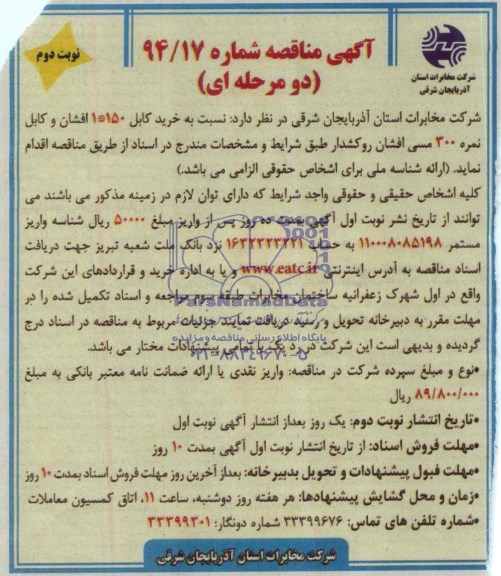 آگهی مناقصه شماره ۹۴/۱۷
(دو مرحله ای)
نوبت دوم
شرکت مخابرات استان
آذربایجان شرقی
شرکت مخابرات استان آذربایجان شرقی در نظر دارد: نسبت به خرید کابل ۱۵۰*۱ افشان و کابل
نمره ۳۰۰ مسی افشان روکشدار طبق شرایط و مشخصات مندرج در اسناد از طریق مناقصه اقدام
نماید. (ارائه شناسه ملی برای اشخاص حقوقی الزامی می باشد.)
کلیه اشخاص حقیقی و حقوقی واجد شرایط که دارای توان لازم در زمینه مذکور می باشند می
توانند از تاریخ نشر نوبت اول آگهی بمدت ده روز پس از واریز مبلغ ۵۰۰۰۰ ریال شناسه واریز
مستمر ۱۱۰۰۰۸۰۸۵۱۹۸ به حساب نزد بانک ملت شعبه تبریز جهت دریافت
اسناد مناقصه به آدرس اینترنتی www.eatc.ir و یا به اداره خرید و قراردادهای این شرکت
واقع در اول شهرک زعفرانیه ساختمان مخابرات طبقه سوم مراجعه و اسناد تکمیل شده را در
مهلت مقرر به دبیرخانه تحویل و رسید دریافت نمایند. جزئیات مربوط به مناقصه در اسناد درج
گردیده و بدیهی است این شرکت در رد یک یا تمامی پیشنهادات مختار می باشد.
•نوع و مبلغ سپرده شرکت در مناقصه: واریز نقدی یا ارائه ضمانت نامه معتبر بانکی به مبلغ
۸۹/۸۰۰/۰۰۰ ریال
•تاریخ انتشار نوبت دوم: یک روز بعداز انتشار آگهی نوبت اول
•مهلت فروش اسناد: از تاریخ انتشار نوبت اول آگهی بمدت ۱۰ روز
•مهلت قبول پیشنهادات و تحویل بدبیرخانه: بعداز آخرین روز مهلت فروش اسناد بمدت ۱۰ روز
•زمان و محل گشایش پیشنهادها: هر هفته روز دوشنبه، ساعت ۱۱، اتاق کمسیون معاملات
•شماره تلفن های تماس: ۳۳۳۹۹۶۷۶ شماره دونگار: ۳۳۳۹۹۳۰۱
شرکت مخابرات استان آذربایجان شرقی
ParsNamadData
پایگاه اطلاع رسانی مناقصه و مزایده
۰۲۱-۸۸۳۴۹۶۷۰-۵